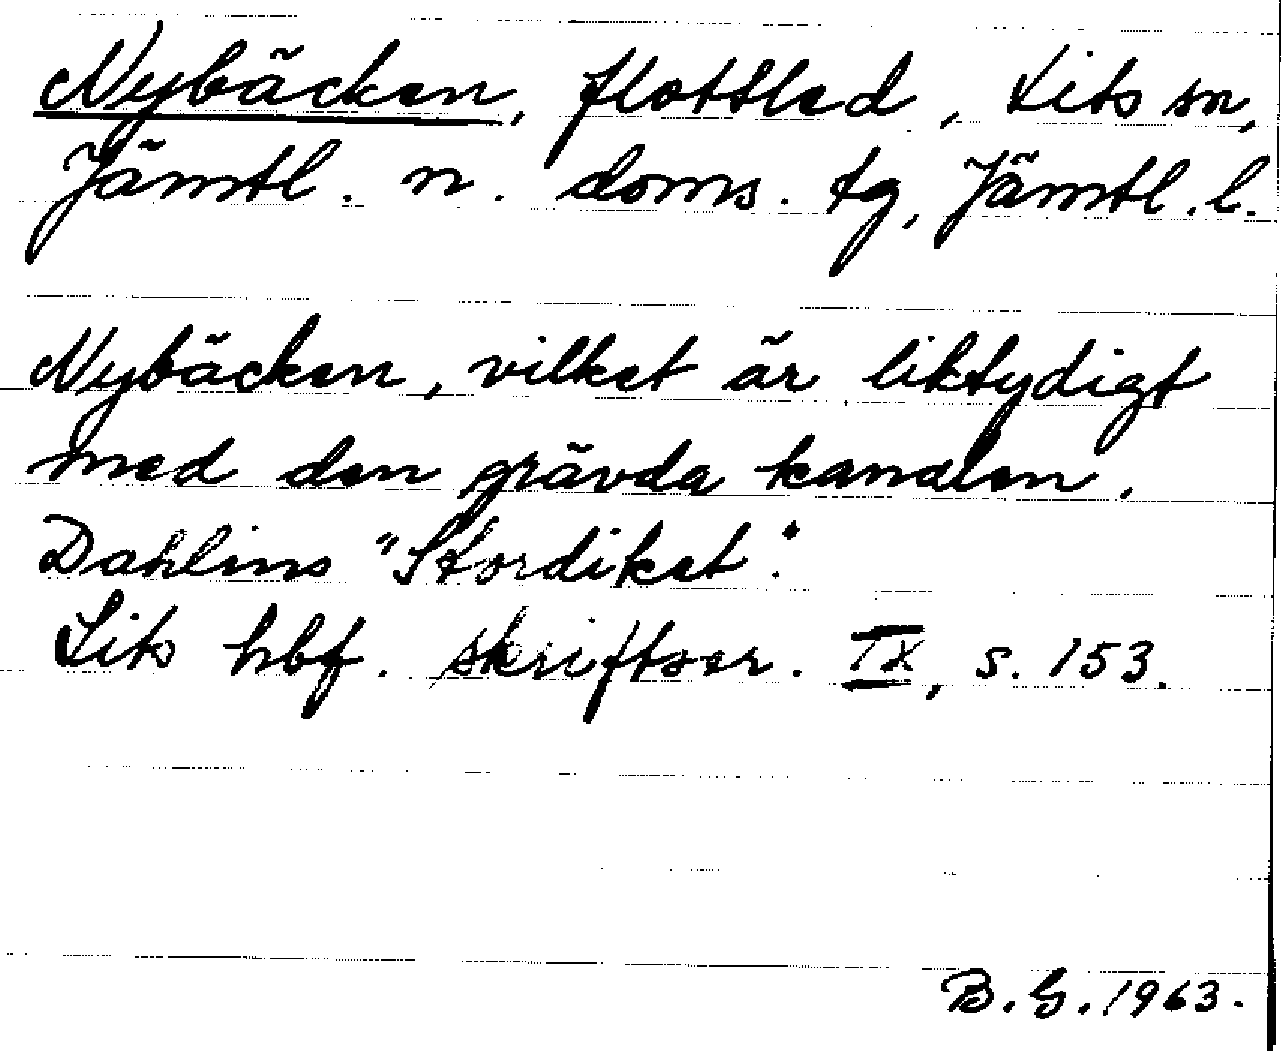 Nybäcken, flottled, Lits sn,
Jämtl. n. doms. tg, Jämtl. l.
Nybäcken, vilket är liktydigt
med den grävda kanalen,
Dahlins "Stordiket".
Lits hbf. skriftser. IX, s. 153.
B. G. 1963.